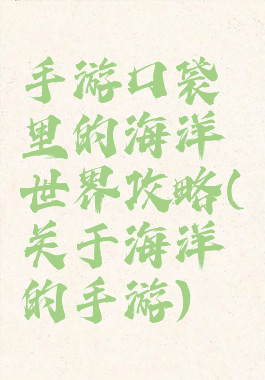 手游口袋
里的海洋
世界攻略(
关于海洋
的手游)